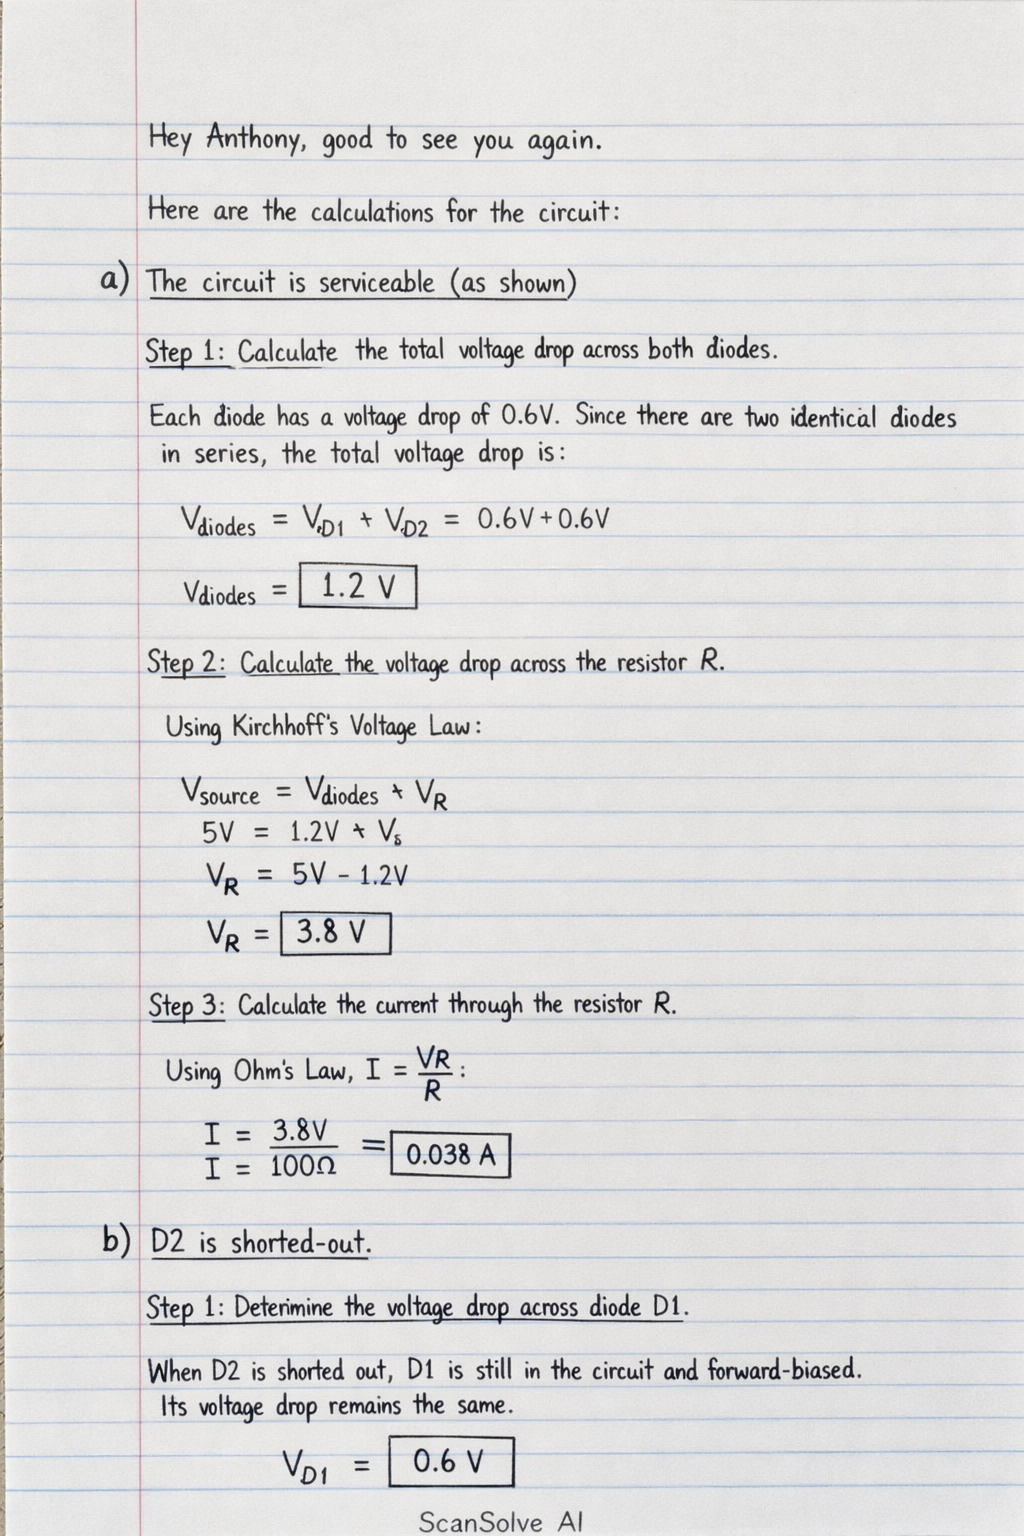 Hey Anthony, good to see you again.
Here are the calculations for the circuit:
a) The circuit is serviceable (as shown)
Step 1: Calculate the total voltage drop across both diodes.
Each diode has a voltage drop of 0.6V. Since there are two identical diodes
in series, the total voltage drop is:
Vdiodes = VD1 + VD2 = 0.6V + 0.6V
Vdiodes = 1.2 V
Step 2: Calculate the voltage drop across the resistor R.
Using Kirchhoff's Voltage Law:
Vsource = Vdiodes + VR
5V = 1.2V + Vs
VR = 5V - 1.2V
VR = 3.8 V
Step 3: Calculate the current through the resistor R.
Using Ohm's Law, I = VR/R :
I = 3.8V
I = 100Ω = 0.038 A
b) D2 is shorted-out.
Step 1: Deterimine the voltage drop across diode D1.
When D2 is shorted out, D1 is still in the circuit and forward-biased.
Its voltage drop remains the same.
VD1 = 0.6 V
ScanSolve AI